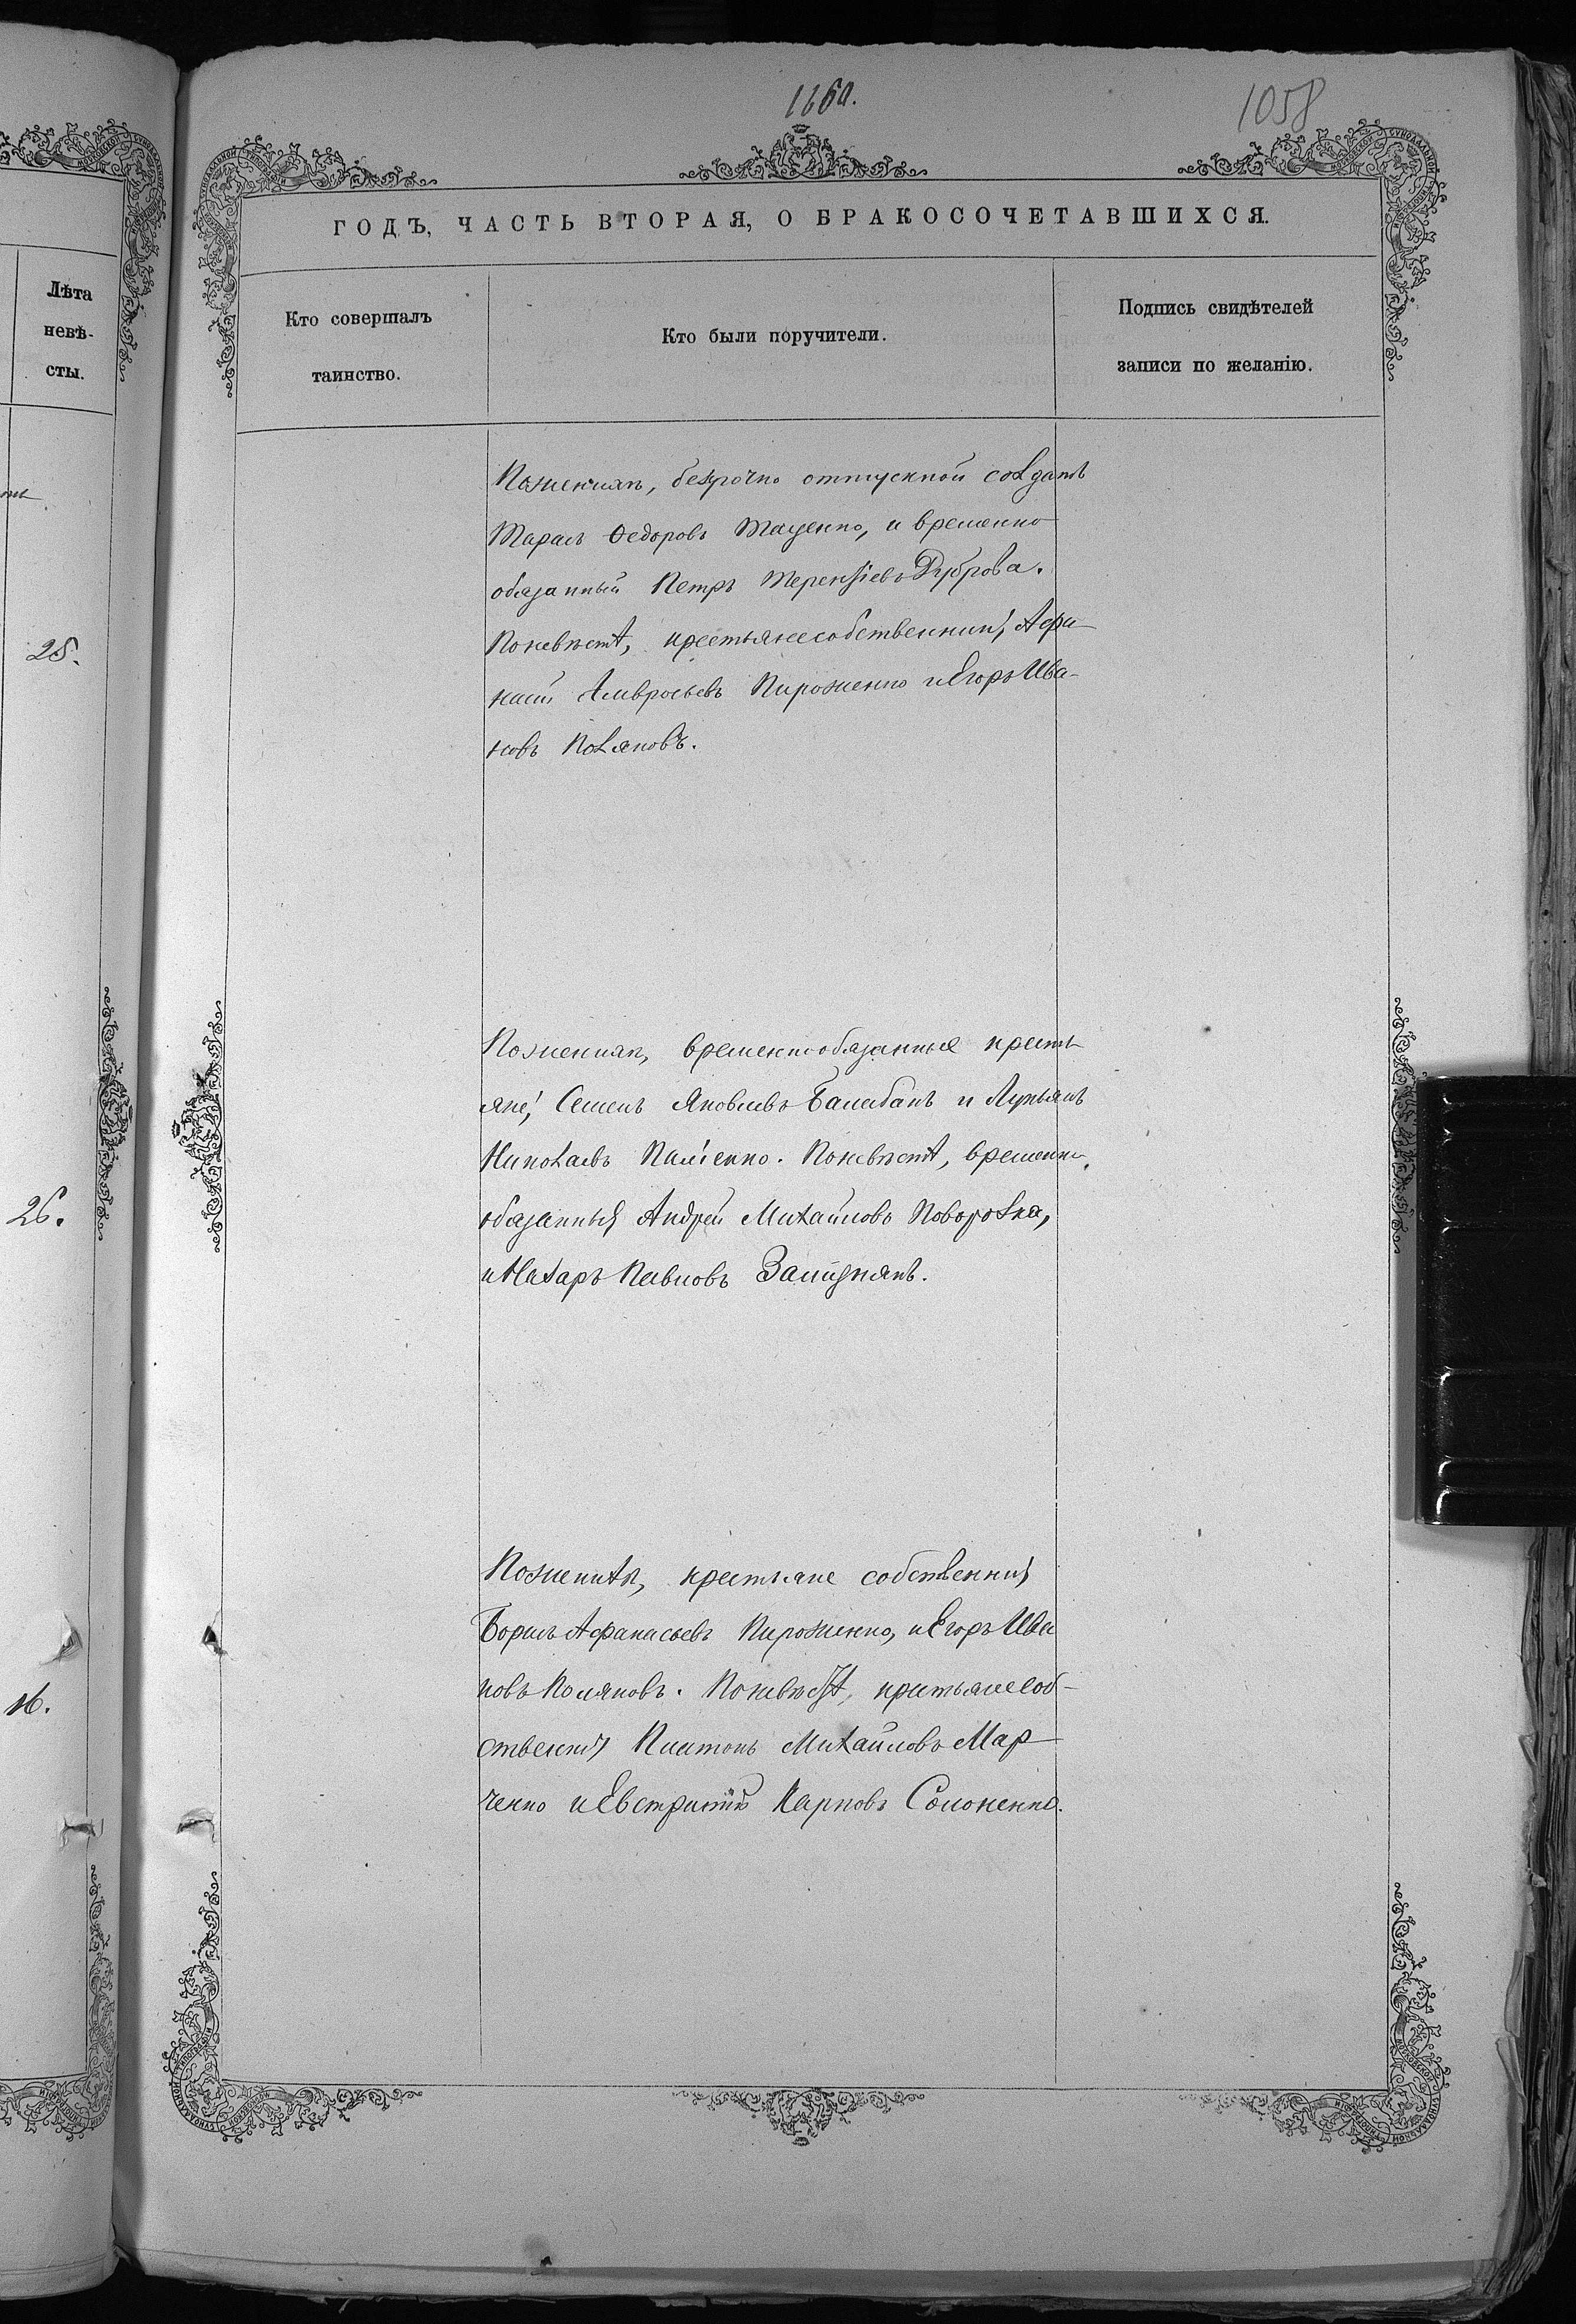 Лѣта
невѣ-
сты.
25.
26.
16.
1058
ГОДЪ, ЧАСТЬ ВТОРАЯ, О БРАКОСОЧЕТАВШИХСЯ.
Кто совершалъ
таинство.
Кто были поручители.
Подпись свидѣтелей
записи по желанію.
Поженихѣ, безсрочно отпускной солдатъ
Тарасъ Ѳедоровъ Таценко, и временно
обязанный Петръ Терентіевъ Дуброва.
Поневѣстѣ, крестьяне собственники, Афа-
насій Амвросьевъ Пироженко и Егоръ Ива-
новъ Поляковъ.
Поженихѣ, временнообязанные кресть
яне, Семенъ Яковлевъ Балабанъ и Лукьянъ
Николаевъ. Поневѣстѣ, временно
обязанные Андрей Михайловъ,
и Назаръ Павловъ.
Поженихѣ, крестьяне собственники
Борисъ Афанасьевъ Пироженко, и Егоръ Ива
новъ Поляковъ. Поневѣстѣ, крестьяне соб-
ственники Платонъ Михайловъ Мар-
ченко и Евстратій Карповъ Солоненко.